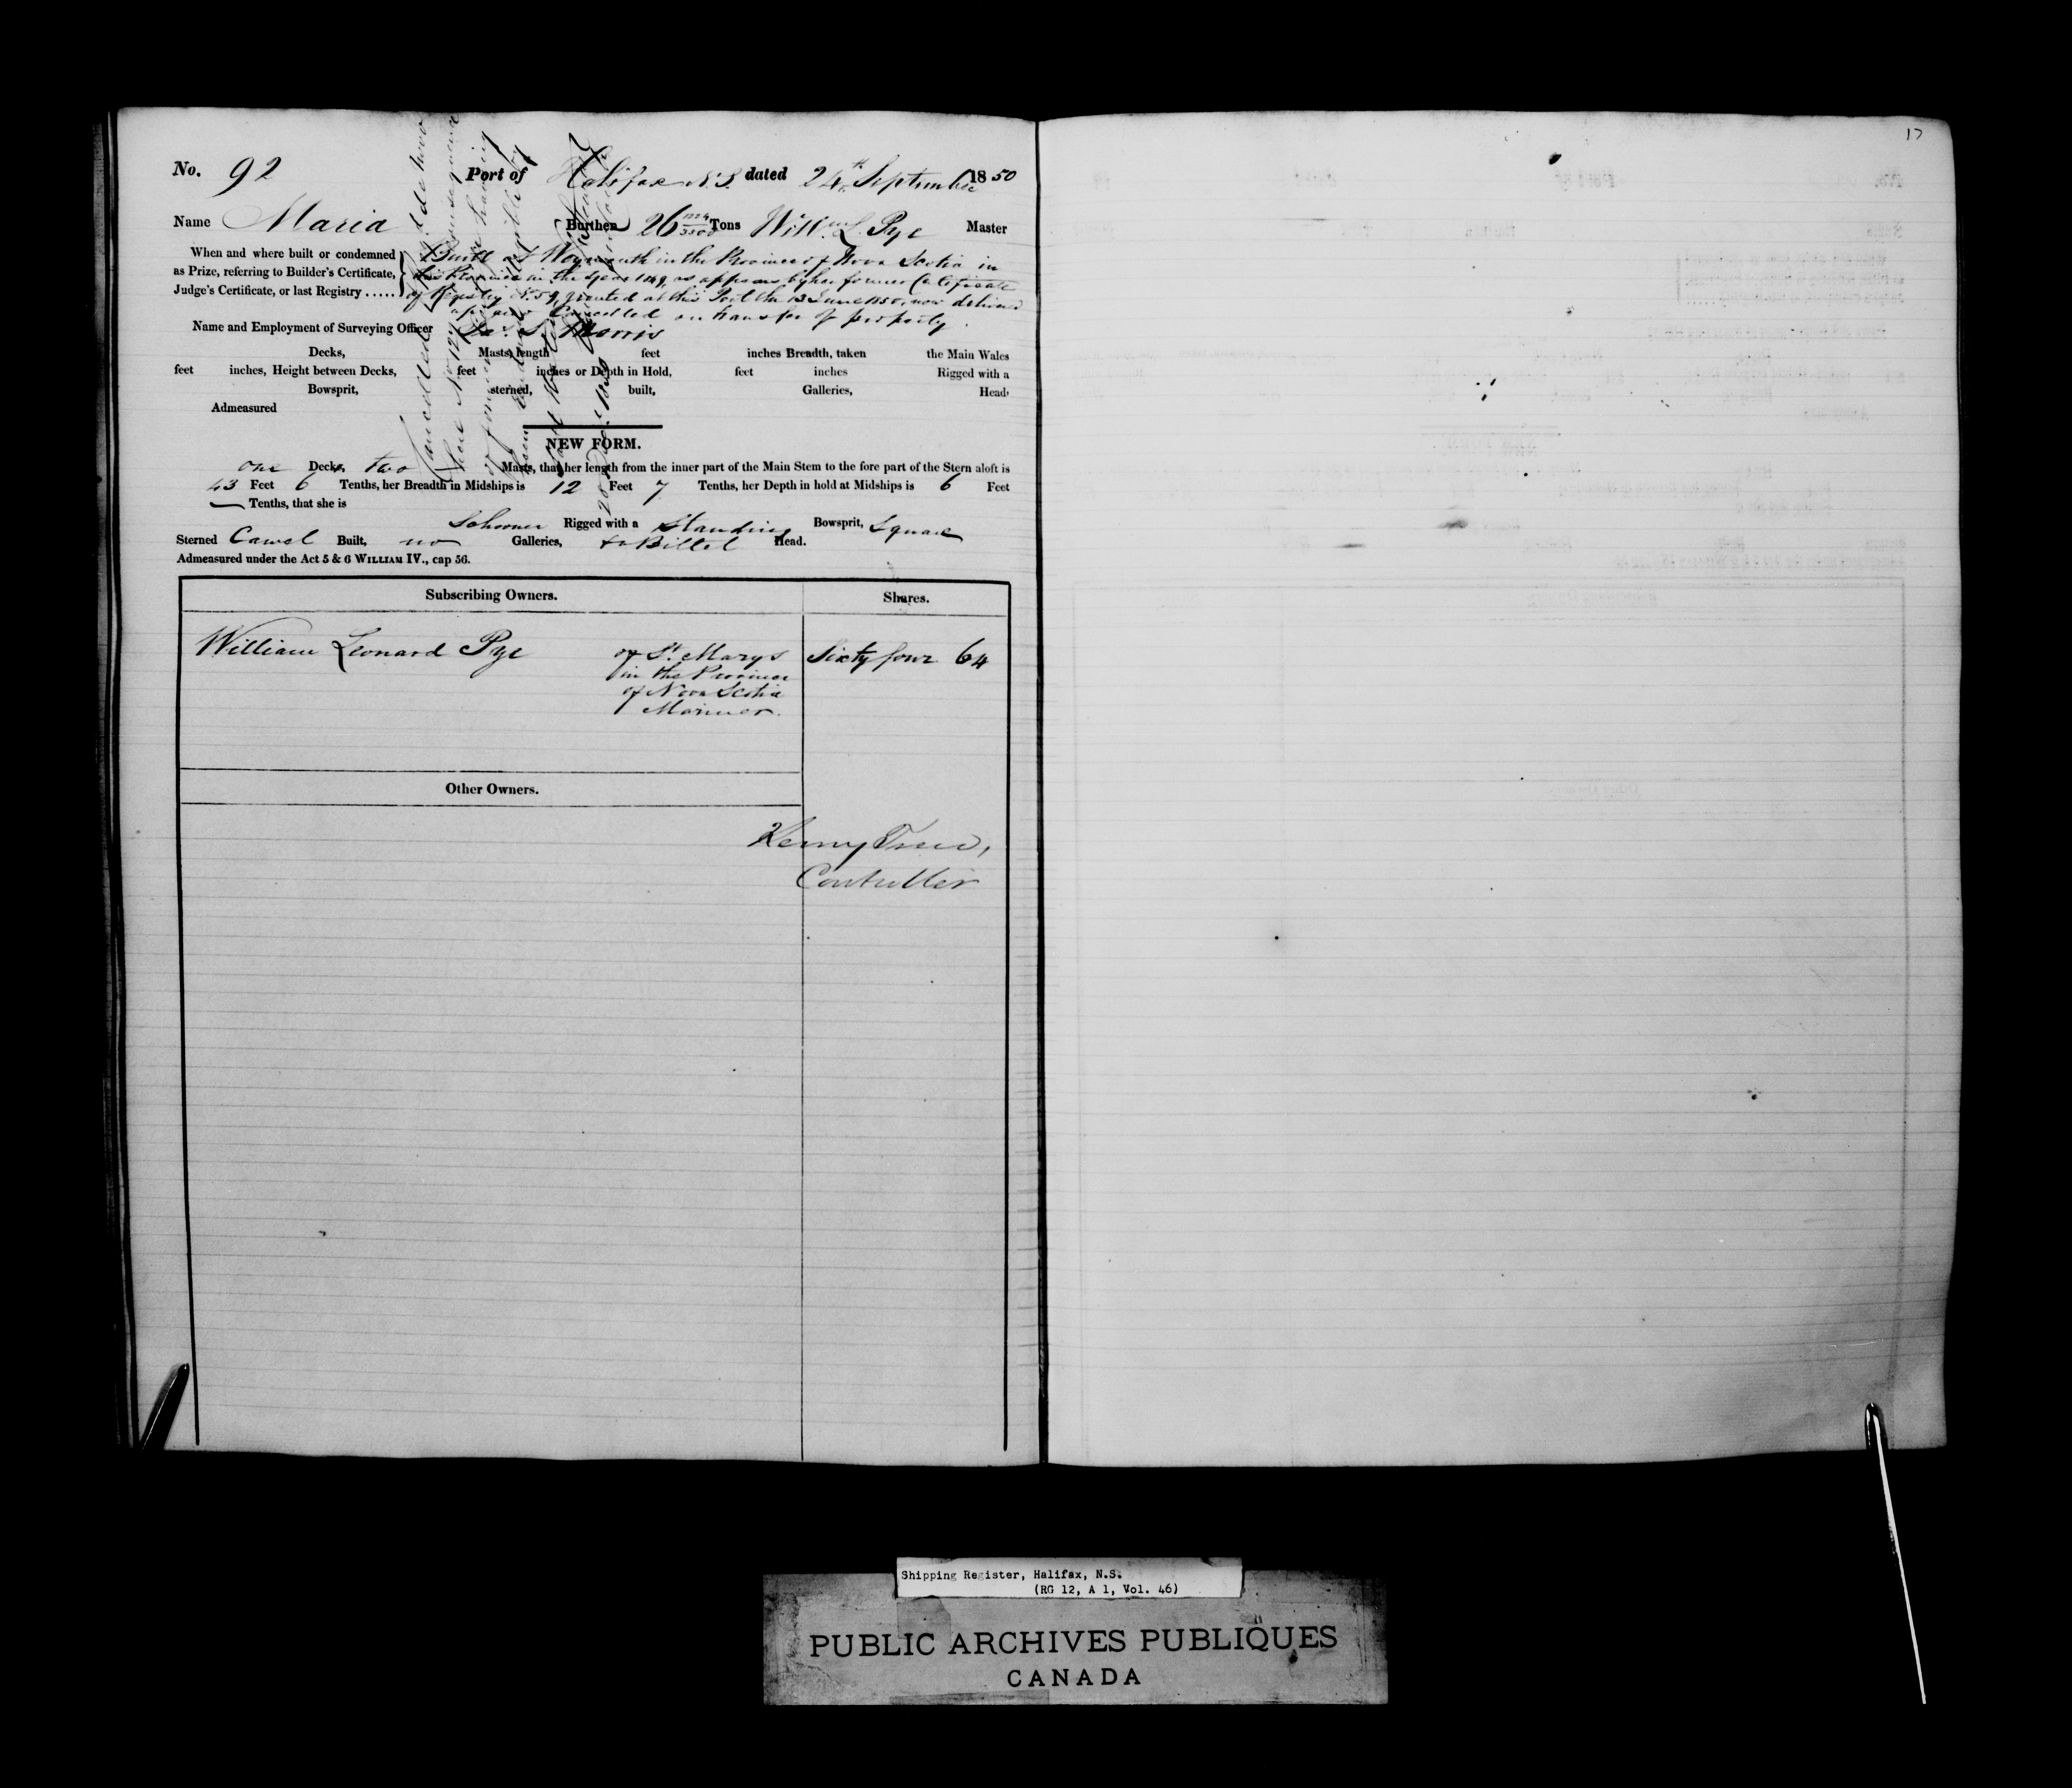 17
No. 92 Port of Halifax N.S. dated 24th September 1850
Name Maria Burthen 26 1224/3500 Tons Willm L. Pye Master
When and where built or condemned
as Prize, referring to Builder's Certificate,
Judge's Certificate, or last Registry .....
Built at Weymouth in the Province of Nova Scotia in
this Province in the year 1849, as appears by her former Certificate
of Registry No. 59, granted at this Port the 13 June 1850, now delivered
up and Cancelled on transfer of property.
Name and Employment of Surveying Officer Morris
Decks, Masts, length feet inches Breadth, taken the Main Wales
feet inches, Height between Decks, feet inches or Depth in Hold, feet inches Rigged with a
Bowsprit, sterned, built, Galleries, Head
Admeasured
NEW FORM.
one Decks two Masts, that her length from the inner part of the Main Stem to the fore part of the Stern aloft is
43 Feet 6 Tenths, her Breadth in Midships is 12 Feet 7 Tenths, her Depth in hold at Midships is 6 Feet
— Tenths, that she is
Schooner Rigged with a Standing Bowsprit, Square
Sterned Carvel Built, no Galleries, Billet Head.
Admeasured under the Act 5 & 6 WILLIAM IV., cap 56.
Cancelled
Subscribing Owners. Shares.
William Leonard Pye of St. Marys Sixty four 64
in the Province
of Nova Scotia
Mariner.
Other Owners.
Controller
Shipping Register, Halifax, N.S.
(RG 12, A 1, Vol. 46)
PUBLIC ARCHIVES PUBLIQUES
CANADA